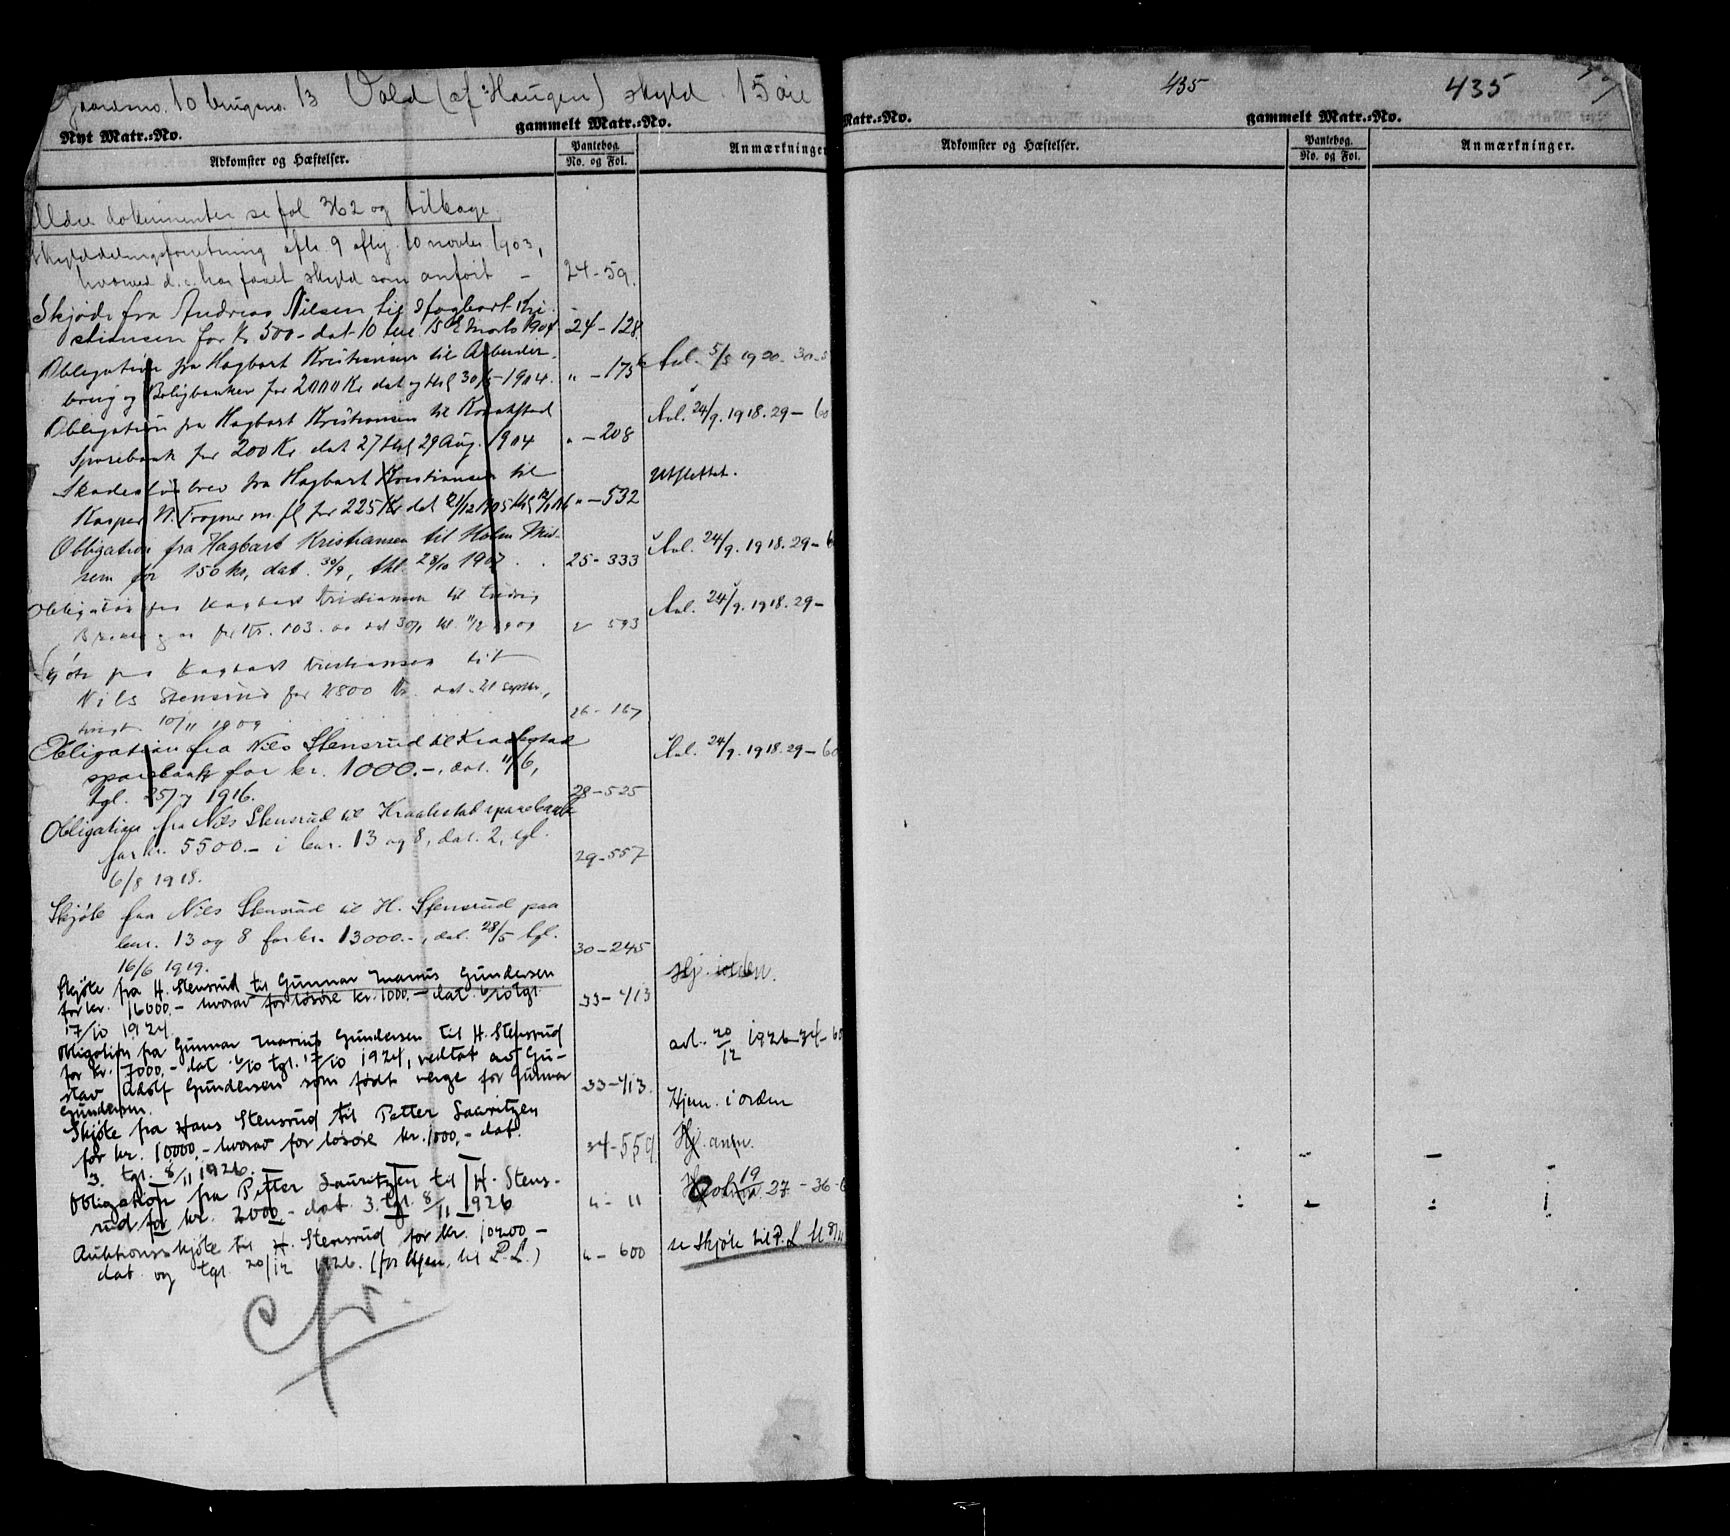 Gaardsno. 10 brugsno. 13 Vold (af Haugen) skyld 15 øre
Nyt Matr.-No. gammelt Matr.-No.
Adkomster og Hæftelser. Pantebog. No. og Fol. Anmærkninger
Ældre dokumenter se fol 362 og tilbage
Skylddelingsforretning afh. 9 aflyj. 10 novbr. 1903,
hvorved d. e. har faaet skyld som anført - 24-59.
Skjøde fra Andreas Nilsen til Hagbart Kri-
stiansen for Kr 500- dat 10 thl. 15 Marts 1904 24-128
Obligation fra Hagbart Kristiansen til Arbeider-
brug og Boligbanken for 2000 Kr dat og thl 30/5-1904. " -175 Avl. 5/5 1920. 30-
Obligation fra Hagbart Kristiansen til Kraakstad
Sparebank for 200 Kr dat 27 thl 29 Aug. 1904 " -208 Avl. 24/9.1918.29-60
Skadesløsbrev fra Hagbart Kristiansen til
Kasper N. Trogner m. fl for 225 Kr dat 21/12 1905 thl "-532 Utslettet.
Obligation fra Hagbart Kristiansen til
for 150 kr, dat. 30/9, thl. 28/10 1907. 25-333 Avl. 24/9.1918.29-6
Obligation fra Hagbart Kristiansen til Ludvig
for Kr. 103.00 dat 30/1 thl. 11/2 1909 " 593 Avl. 24/9.1918.29-
Skjøte fra Hagbart Kristiansen til
Nils Stensrud for 2800 Kr. dat. 21 septbr,
tingl. 10/11 1909 26-167
Obligation fra Nils Stensrud til Kraakstad
sparebank for kr. 1000.-, dat. 11/6,
tgl. 25/7 1916. 28-525 Avl. 24/9.1918.29-60
Obligation fra Nils Stensrud til Kraakstad sparebank
for kr. 5500.- i bnr. 13 og 8, dat. 2, tgl.
6/8 1918. 29-557
Skjøte fra Nils Stensrud til H. Stensrud paa
bnr. 13 og 8 for kr. 13000.-, dat. 28/5 tgl.
16/6 1919. 30-245
Skjøte fra H. Stensrud til Gunnar Marius Gundersen
for kr. 16000.- hvorav for løsøre kr. 1000.- dat. 6/10 tgl.
17/10 1924. 33-413 Hj. iorden.
Obligation fra Gunnar Marius Gundersen til H. Stensrud
for kr. 7000,- dat. 6/10 tgl. 17/10 1924, vedtat av Gu-
stav Adolf Gundersen som født verge for Gunnar
Gundersen. 33-413. avl. 20/12 1926-34-60
Skjøte fra Hans Stensrud til Petter Lauritzen
for kr. 10000,- hvorav for løsøre kr. 1000,- dat.
3. tgl. 8/11 1926. 34-559 Hjem. i orden
Hj. anm.
Obligation fra Petter Lauritzen til H. Stens-
rud for kr. 2000,- dat. 3. tgl. 8/11 1926 "- 11 27-36-6
Auktionsskjøte til H. Stensrud for kr. 10200-
dat. og tgl. 20/12 1926. (for hjem. til P. L.) "- 600 se skjøte til P. L. tl 8/11
cfr.
435 435
Matr.-No. gammelt Matr.-No.
Adkomster og Hæftelser. Pantebog. No. og Fol. Anmærkninger.